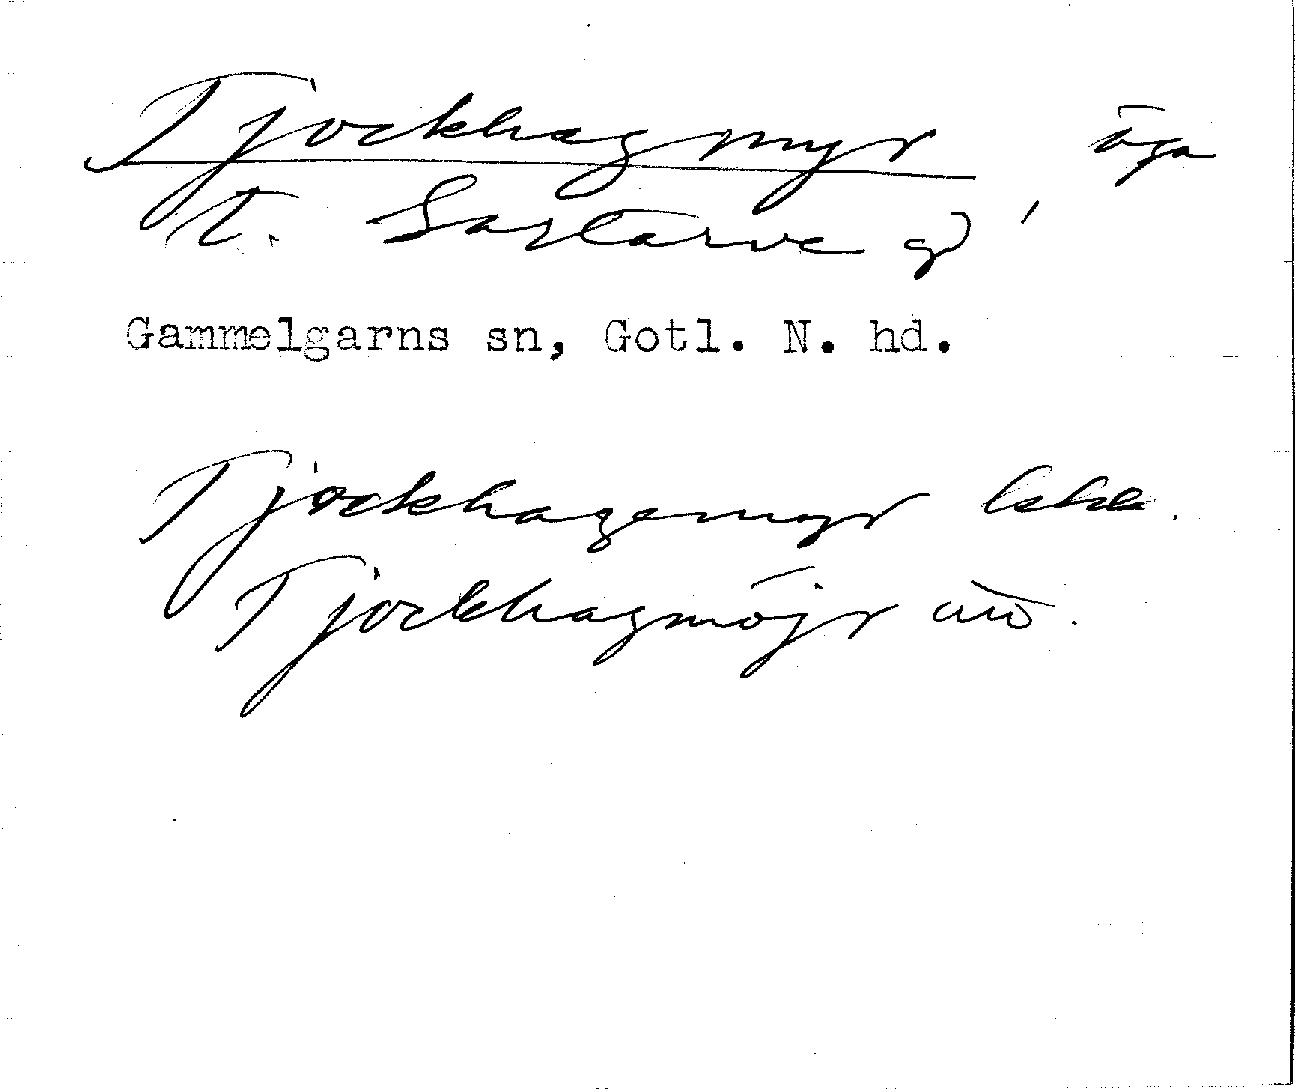 Tjockhagmyr, äga
t. Sartarve gd,
Gammelgarns sn, Gotl. N. hd.
Tjockhagemyr
Tjockhagmöjr